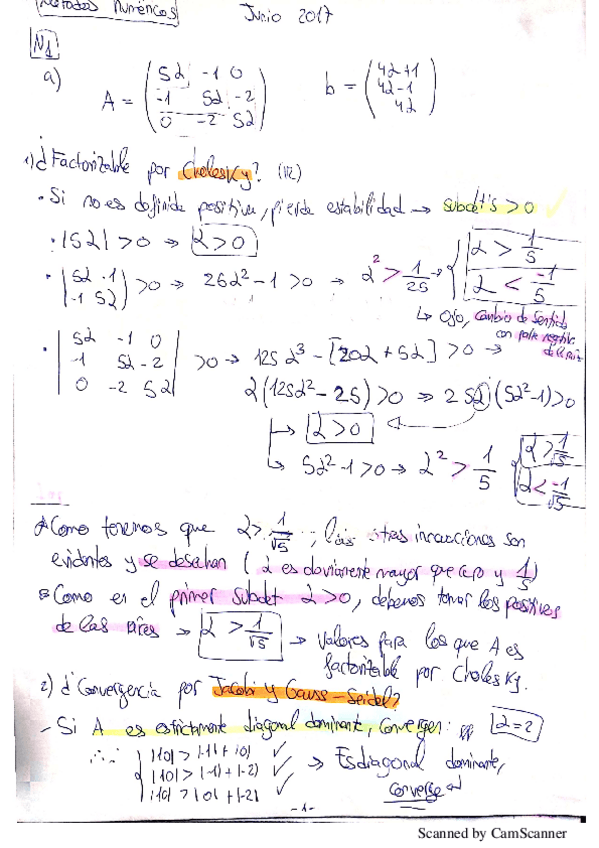 Métodos Numéricos Junio 2017
N1
a) A = (5α -1 0 / -1 5α -2 / 0 -2 5α) b = (4α+1 / 4α-1 / 4α)
1) ¿Factorizable por Cholesky? (1/2)
• Si no es definida positiva, pierde estabilidad → subdet's > 0 ✓
• |5α| > 0 → α > 0
• |5α -1 / -1 5α| > 0 → 26α² - 1 > 0 → α² > 1/25 → { α > 1/5 / α < -1/5
↳ Ojo, cambio de sentido
con parte negativa
de la raíz
• |5α -1 0 / -1 5α -2 / 0 -2 5α| > 0 → 125α³ - [20α + 5α] > 0 →
α(125α² - 25) > 0 → 25α (5α² - 1) > 0
↳ α > 0
↳ 5α² - 1 > 0 → α² > 1/5 { α > 1/√5 / α < -1/√5
* Como tenemos que α > 1/√5, las otras inecuaciones son
evidentes y se desechan (α es obviamente mayor que cero y 1/5)
* Como en el primer subdet α > 0, debemos tomar los positivos
de las raíces → α > 1/√5 → Valores para los que A es
factorizable por Cholesky.
2) ¿Convergencia por Jacobi y Gauss-Seidel?
- Si A es estrictamente diagonal dominante, converge: α = 2
∴ { |10| > |-1| + |0| ✓
|10| > |-1| + |-2| ✓ → Es diagonal dominante,
|10| > |0| + |-2| ✓ converge
-1-
Scanned by CamScanner